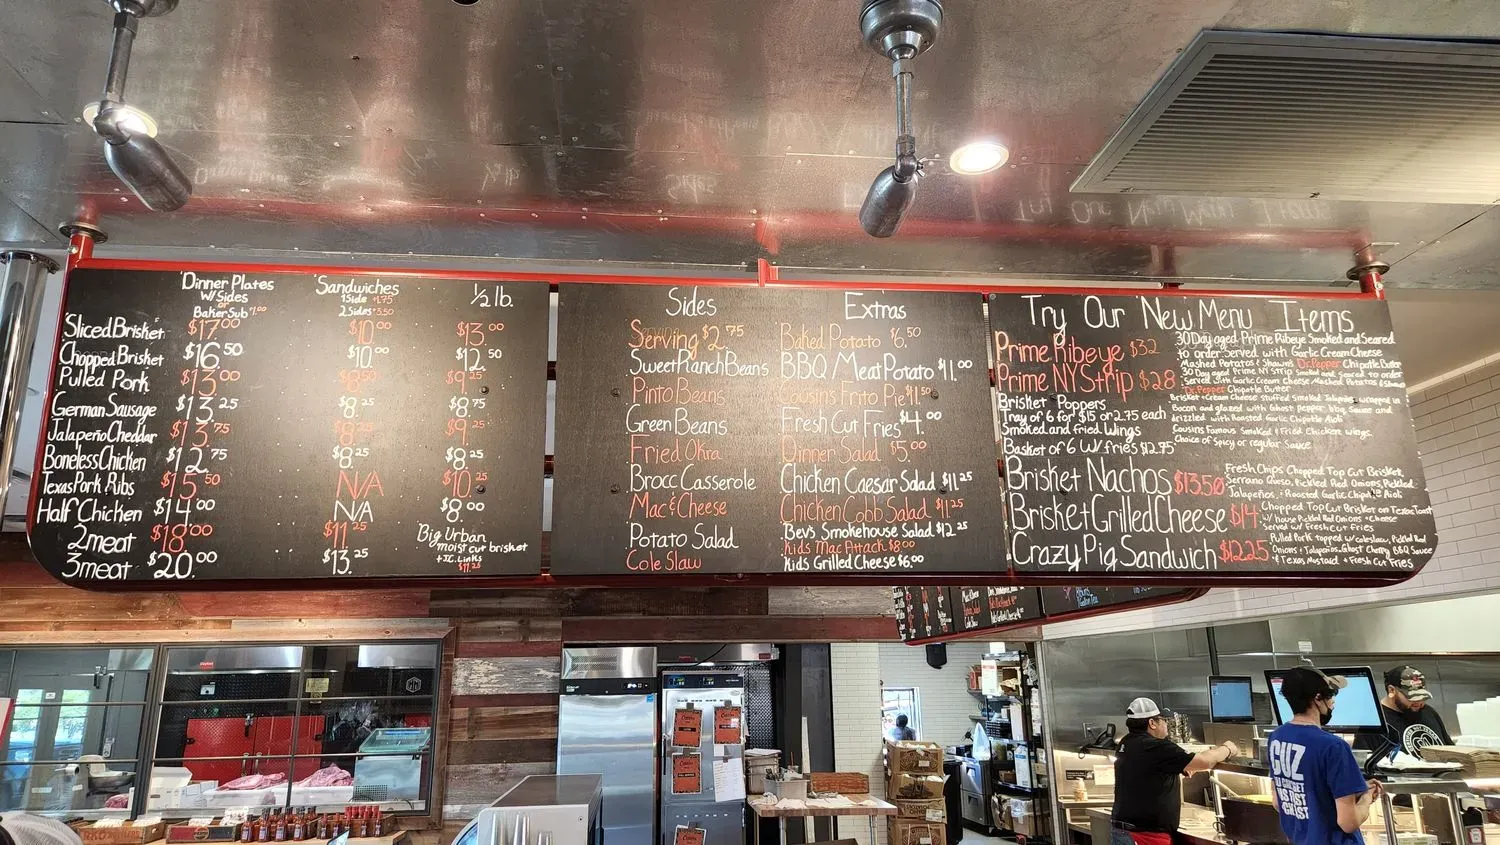 Dinner Plates
W/Sides
or
Baker Sub $1.00
Sandwiches
1 Side +1.75
2 Sides +3.50
1/2 lb.
Sliced Brisket $17.00 $10.00 $13.00
Chopped Brisket $16.50 $10.00 $12.50
Pulled Pork $13.00 $8.50 $9.25
German Sausage $13.25 $8.25 $8.75
Jalapeño Cheddar $13.75 $8.25 $9.25
Boneless Chicken $12.75 $8.25 $8.25
Texas Pork Ribs $15.50 N/A $10.25
Half Chicken $14.00 N/A $8.00
2 meat $18.00 $11.25
3 meat $20.00 $13.25
Big Urban
moist cut brisket
+ J.C. Links
$11.25
Sides
Serving $2.75
Sweet Ranch Beans
Pinto Beans
Green Beans
Fried Okra
Brocc Casserole
Mac & Cheese
Potato Salad
Cole Slaw
Extras
Baked Potato $6.50
BBQ Meat Potato $11.00
Cousins Frito Pie $11.50
Fresh Cut Fries $4.00
Dinner Salad $5.00
Chicken Caesar Salad $11.25
Chicken Cobb Salad $11.25
Bev's Smokehouse Salad $12.25
Kids Mac Attach $8.00
Kids Grilled Cheese $6.00
Try Our 'New' Menu Items
Prime Ribeye $32
30 Day aged Prime Ribeye Smoked and Seared
to order. Served with Garlic Cream Cheese
Mashed Potatoes & Shawn's Dr. Pepper Chipotle Butter
Prime NY Strip $28
30 Day aged Prime NY Strip Smoked and seared to order
Served with Garlic Cream Cheese Mashed Potatoes & Shawns
Dr. Pepper Chipotle Butter
Brisket Poppers
Tray of 6 for $15 or 2.75 each
Brisket + Cream Cheese stuffed Smoked Jalapeños wrapped in
Bacon and glazed with Ghost pepper bbq Sauce and
Drizzled with Roasted Garlic Chipotle Aioli
Smoked and fried Wings
Basket of 6 W/ fries $12.75
Cousins Famous Smoked + Fried Chicken wings
Choice of Spicy or regular Sauce
Brisket Nachos $13.50
Fresh Chips Chopped Top Cut Brisket,
Serrano Queso, Pickled Red Onions, Pickled
Jalapeños, + Roasted Garlic Chipotle Aioli
Brisket Grilled Cheese $14
Chopped Top Cut Brisket on Texas Toast
w/ house Pickled Red Onions + Cheese
Served w/ Fresh cut fries
Crazy Pig Sandwich $12.25
Pulled Pork topped w/ coleslaw, Pickled Red
Onions + Jalapeños Ghost Cherry BBQ Sauce
+ Texas Mustard + Fresh Cut Fries
CUZ